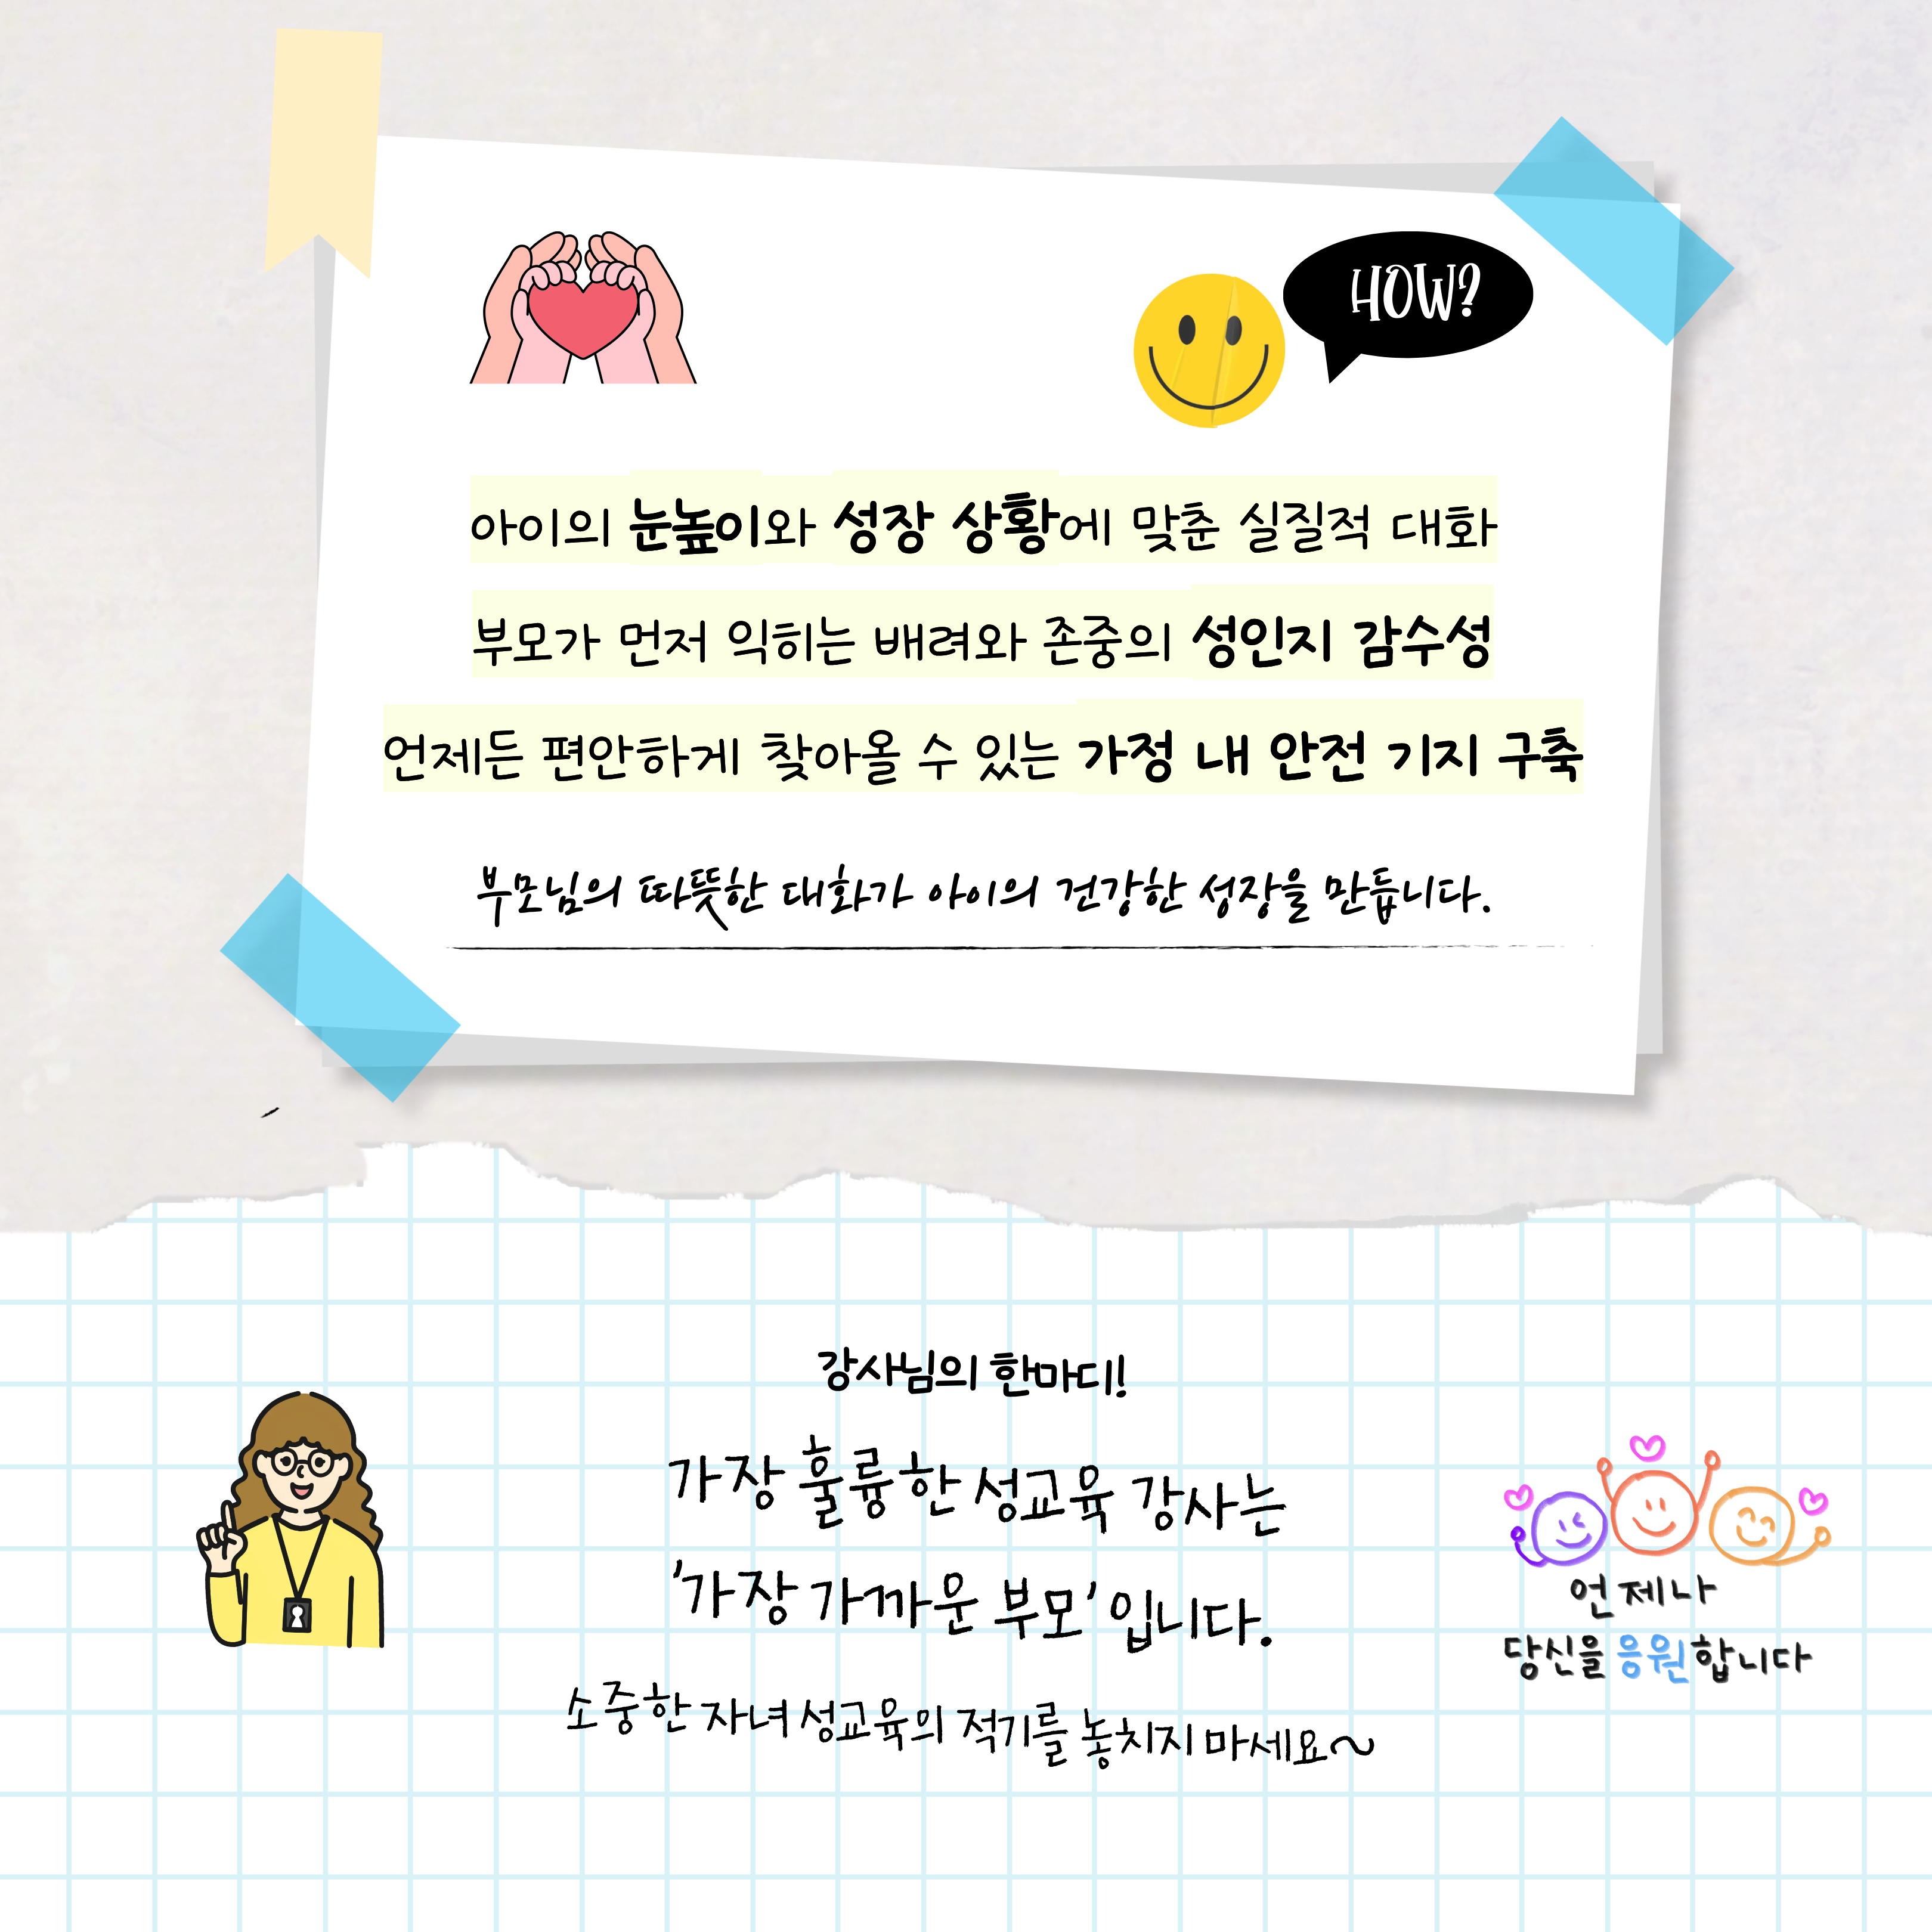 HOW?
아이의 눈높이와 성장 상황에 맞춘 실질적 대화
부모가 먼저 익히는 배려와 존중의 성인지 감수성
언제든 편안하게 찾아올 수 있는 가정 내 안전 기지 구축
부모님의 따뜻한 대화가 아이의 건강한 성장을 만듭니다.
강사님의 한마디!
가장 훌륭한 성교육 강사는
'가장 가까운 부모' 입니다.
소중한 자녀 성교육의 적기를 놓치지 마세요~
언제나
당신을 응원합니다